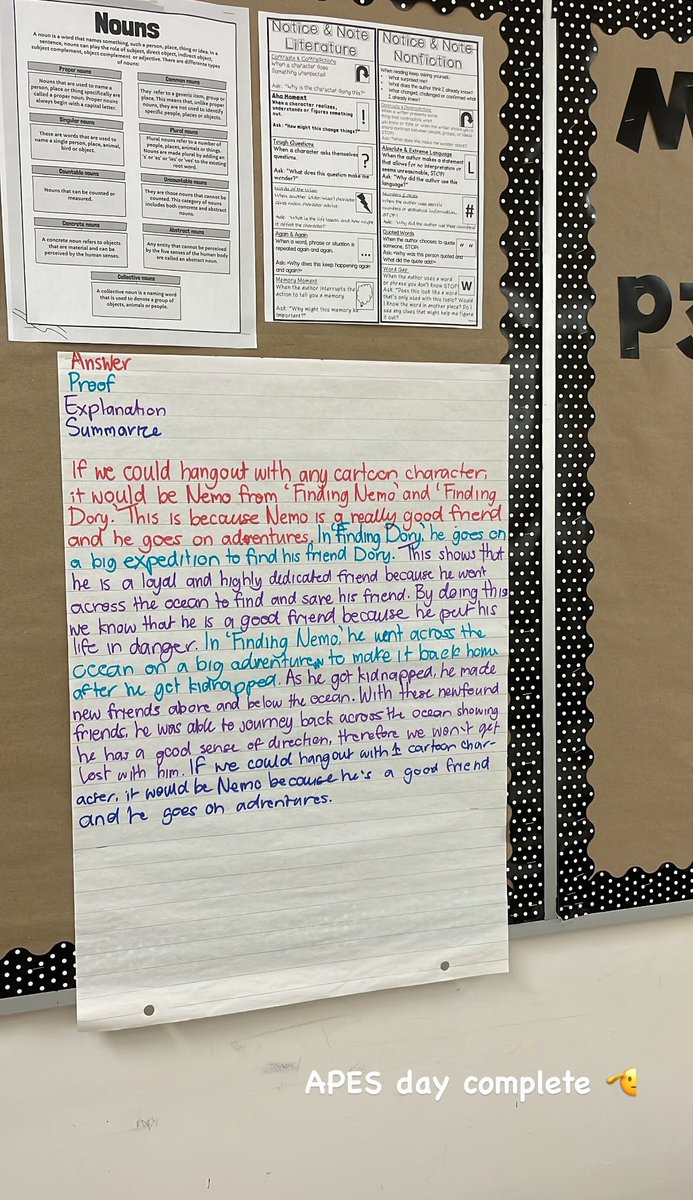 Nouns
A noun is a word that names something, such a person, place, thing or idea. In a
sentence, nouns can play the role of subject, direct object, indirect object,
subject complement, object complement, or adjective. There are different types
of nouns:
Proper nouns
Nouns that are used to name a
person, place or thing specifically are
called a proper noun. Proper nouns
always begin with a capital letter.
Common nouns
They refer to a generic item, group or
place. This means that, unlike proper
nouns, they are not used to identify
specific people, places or objects.
Singular nouns
These are words that are used to
name a single person, place, animal,
bird or object.
Plural nouns
Plural nouns refer to a number of
people, places, animals or things.
Nouns are made plural by adding an
's' or 'es' or 'ies' or 'ves' to the existing
root word.
Countable nouns
Nouns that can be counted or
measured.
Uncountable nouns
They are those nouns that cannot be
counted. This category of nouns
includes both concrete and abstract
nouns.
Concrete nouns
A concrete noun refers to objects
that are material and can be
perceived by the human senses.
Abstract nouns
Any entity that cannot be perceived
by the five senses of the human body
are called an abstract noun.
Collective nouns
A collective noun is a naming word
that is used to denote a group of
objects, animals or people.
Notice & Note
Literature
Contrasts & Contradictions
When a character does
something unexpected
Ask: "Why is the character doing this?"
Aha Moment
When a character realizes,
understands or figures something
out.
!
Ask: "How might this change things?"
Tough Questions
When a character asks themselves
questions.
?
Ask: "What does this question make me
wonder?"
Words of the Wiser
Ask: "What is the life lesson and how might
it affect the character?"
Again & Again
When a word, phrase or situation is
repeated again and again.
...
Ask: "Why does this keep happening again
and again?"
Memory Moment
When the author interrupts the
action to tell you a memory
Ask: "Why might this memory be
important?"
Notice & Note
Nonfiction
When reading keep asking yourself:
What surprised me?
What does the author think I already know?
What changed, challenged or confirmed what
I already knew?
Contrasts & Contradictions
Ask: "What does this make me wonder about?"
Absolute & Extreme Language
When the author makes a statement
that allows for no interpretation or
seems unreasonable, STOP!
L
Ask: "Why did the author use this
language?"
Numbers & Stats
#
Quoted Words
When the author chooses to quote
someone, STOP!
" "
Ask: "Why was this person quoted and
What did the quote add?"
Word Gap
When the author uses a word
or phrase you don't know STOP!
W
Ask: "Does this look like a word
that's only used with this topic? Would
I know the word in another place? Do I
see any clues that might help me figure
it out?"
Answer
Proof
Explanation
Summarize
If we could hangout with any cartoon character,
it would be Nemo from 'Finding Nemo' and 'Finding
Dory.' This is because Nemo is a really good friend
and he goes on adventures. In 'Finding Dory,' he goes on
a big expedition to find his friend Dory. This shows that
he is a loyal and highly dedicated friend because he went
across the ocean to find and save his friend. By doing this
we know that he is a good friend because he put his
life in danger. In 'Finding Nemo,' he went across the
ocean on a big adventure to make it back home
after he got kidnapped. As he got kidnapped, he made
new friends above and below the ocean. With these newfound
friends, he was able to journey back across the ocean showing
he has a good sense of direction, therefore we won't get
lost with him. If we could hangout with 1 cartoon char-
acter, it would be Nemo because he's a good friend
and he goes on adventures.
APES day complete 🫡